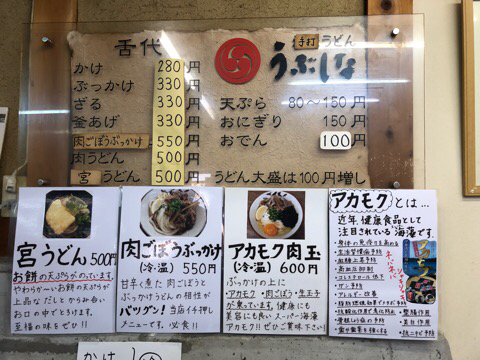 舌代
かけ 280円
ぶっかけ 330円
ざる 330円
釜あげ 330円
肉ごぼうぶっかけ 550円
肉うどん 500円
宮うどん 500円
手打 うどん
うぶしな
天ぷら 80〜150円
おにぎり 150円
おでん 100円
うどん大盛は100円増し
宮うどん 500円
お餅の天ぷらがのっています。
やわらか〜いお餅の天ぷらが
上品なだしとからみ合い
お口の中でとろけます。
至福の味をぜひ!!
肉ごぼうぶっかけ
(冷・温) 550円
甘辛く煮た肉ごぼうと
ぶっかけうどんの相性が
バツグン!当店イチ押し
メニューです。必食!!
アカモク肉玉
(冷・温) 600円
ぶっかけの上に
・アカモク・肉ごぼう・生玉子
が乗っています。健康にも
美容にも良いスーパー海藻
アカモク!!ぜひご賞味下さい!
アカモクとは…
近年、健康食品として
注目されている海藻です。
・生活習慣病予防
・コレステロール低下
・アレルギー改善
ネバネバ
シャキシャキ
・美白作用
かけ